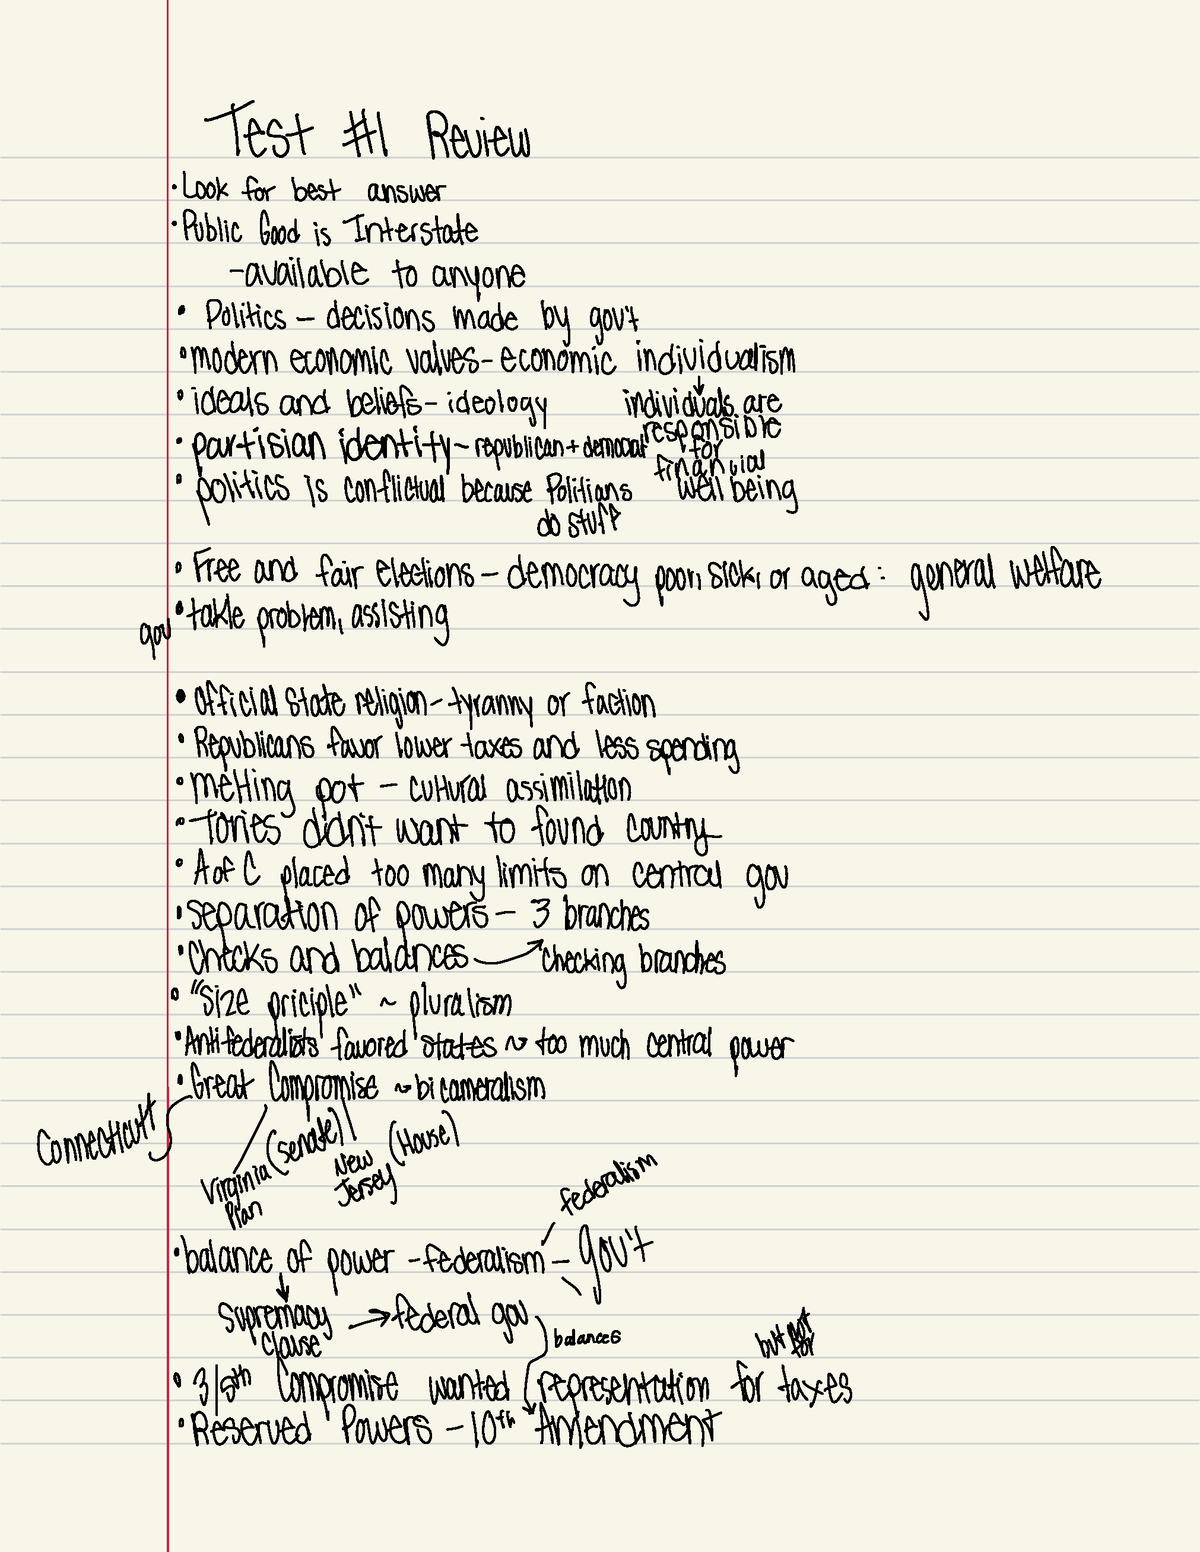 Test #1 Review
• Look for best answer
• Public Good is Interstate
-available to anyone
• Politics – decisions made by gov't
• modern economic values – economic individualism
• ideals and beliefs – ideology
individuals are
responsible
for
financial
well being
• partisian identity ~ republican + democrat
• politics is conflictual because Politians
do stuff
• Free and fair elections – democracy poor, sick, or aged: general welfare
gov • takle problem, assisting
• Official State religion – tyranny or faction
• Republicans favor lower taxes and less spending
• melting pot – cultural assimilation
• Tories didn't want to found country
• A of C placed too many limits on central gov
• separation of powers – 3 branches
• Checks and balances → checking branches
• "Size priciple" ~ pluralism
• Antifederalists favored states ~ too much central power
• Great Compromise ~ bicameralism
Connecticutt
Virginia (senate)
Plan
New (House)
Jersey
federalism
• balance of power – federalism – gov't
Supremacy → federal gov
Clause
balances
but not
for
• 3/5th Compromise wanted representation for taxes
• Reserved Powers – 10th Amendment